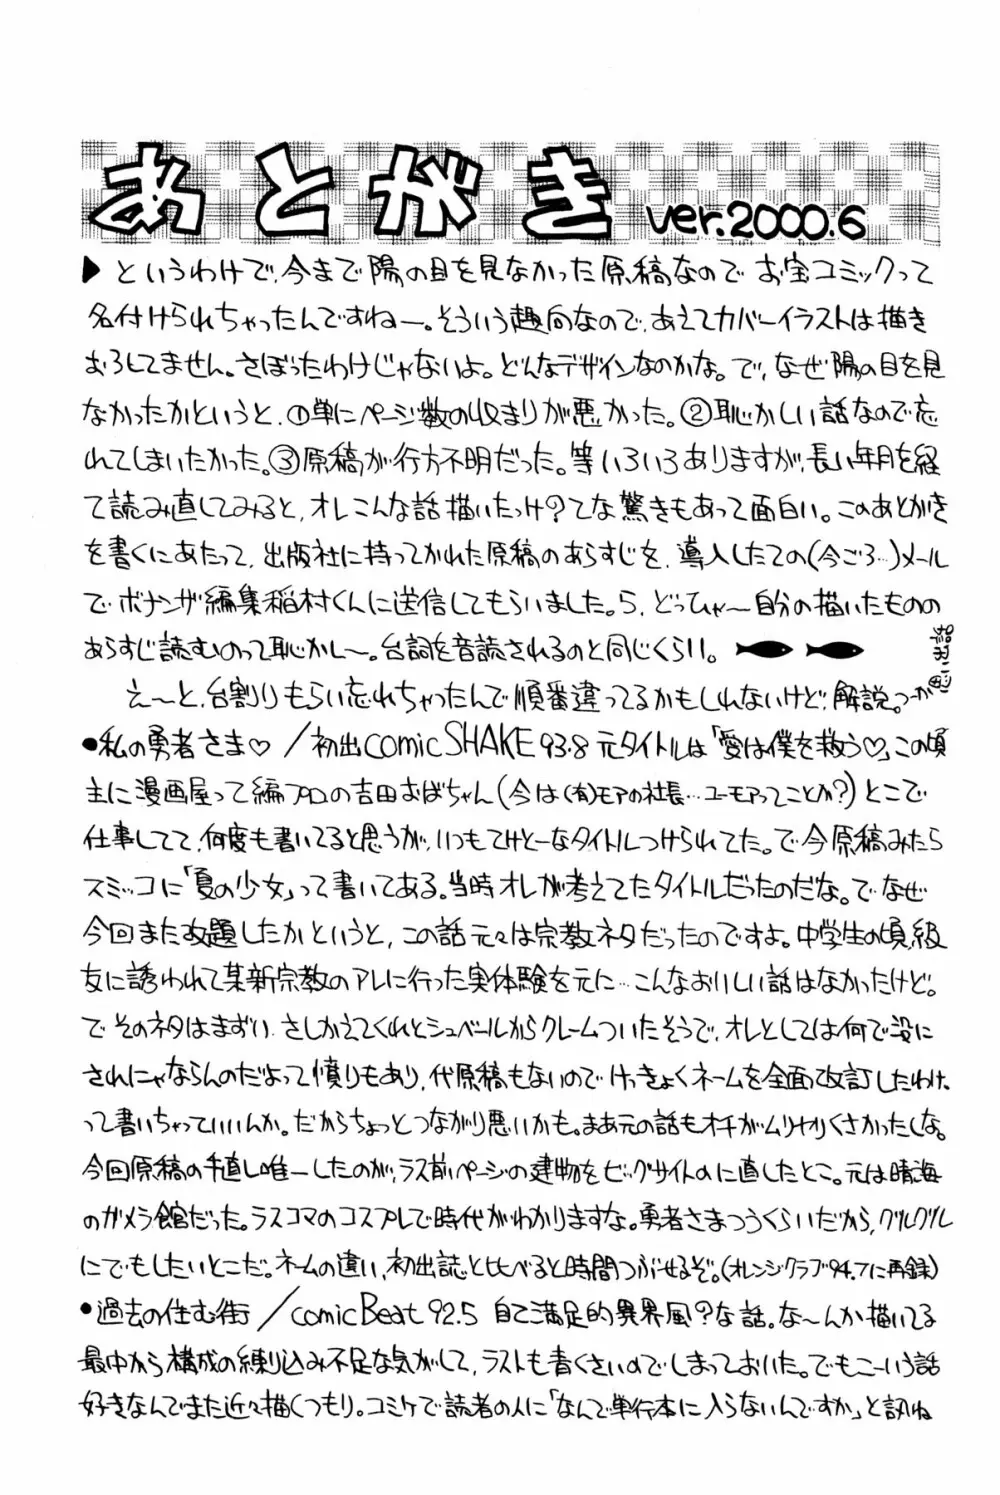 あとがき ver.2000.6
▶というわけで、今まで陽の目を見なかった原稿なので お宝コミックって
名付けられちゃったんですねー。そういう趣向なので、あえてカバーイラストは描き
おろしてません。さぼったわけじゃないよ。どんなデザインなのかな。で、なぜ陽の目を見
なかったかというと、①単にページ数の収まりが悪かった。②恥かしい話なので忘
れてしまいたかった。③原稿が行方不明だった。等いろいろありますが、長い年月を経
て読み直してみると、オレこんな話描いたっけ?てな驚きもあって面白い。このあとがき
を書くにあたって、出版社に持ってかれた原稿のあらすじを、導入したての(今ごろ…)メール
でボナンザ編集稲村くんに送信してもらいました。ら、どっひゃ〜自分の描いたものの
あらすじ読むのって恥かし〜。台詞を音読されるのと同じくらい。
え〜と、台割りもらい忘れちゃったんで順番違ってるかもしれないけど、解説。つーか思い出話
●私の勇者さま♡/初出comic SHAKE 93.8 元タイトルは「愛は僕を救う♡」この頃
主に漫画屋って編プロの吉田おばちゃん(今は(有)モアの社長…ユーモアってことか?)とこで
仕事してて、何度も書いてると思うが、いつもてけとーなタイトルつけられてた。で今原稿みたら
スミッコに「夏の少女」って書いてある。当時オレが考えてたタイトルだったのだな。でなぜ
今回また改題したかというと、この話元々は宗教ネタだったのですよ。中学生の頃、級
友に誘われて某新宗教のアレに行った実体験を元に…こんなおいしい話はなかったけど。
でそのネタはまずい、さしかえてくれとシュベールからクレームついたそうで、オレとしては何で没に
されにゃならんのだよって憤りもあり、代原稿もないのでけっきょくネームを全面改訂したわけ
って書いちゃっていいんか。だからちょっとつながり悪いかも。まあ元の話もオチがムリヤリくさかったしな。
今回原稿の手直し唯一したのが、ラス前ページの建物をビッグサイトのに直したとこ。元は晴海
のガメラ館だった。ラスコマのコスプレで時代がわかりますな。勇者さまつうくらいだから、グルグル
にでもしたいとこだ。ネームの違い、初出誌と比べると時間つぶせるぞ。(オレンジクラブ94.7に再録)
●過去の住む街/comic Beat 92.5 自己満足的異界風?な話。な〜んか描いてる
最中から構成の練り込み不足な気がして、ラストも青くさいのでしまっておいた。でもこーいう話
好きなんでまた近々描くつもり。コミケで読者の人に「なんで単行本に入らないんですか」と訊ね